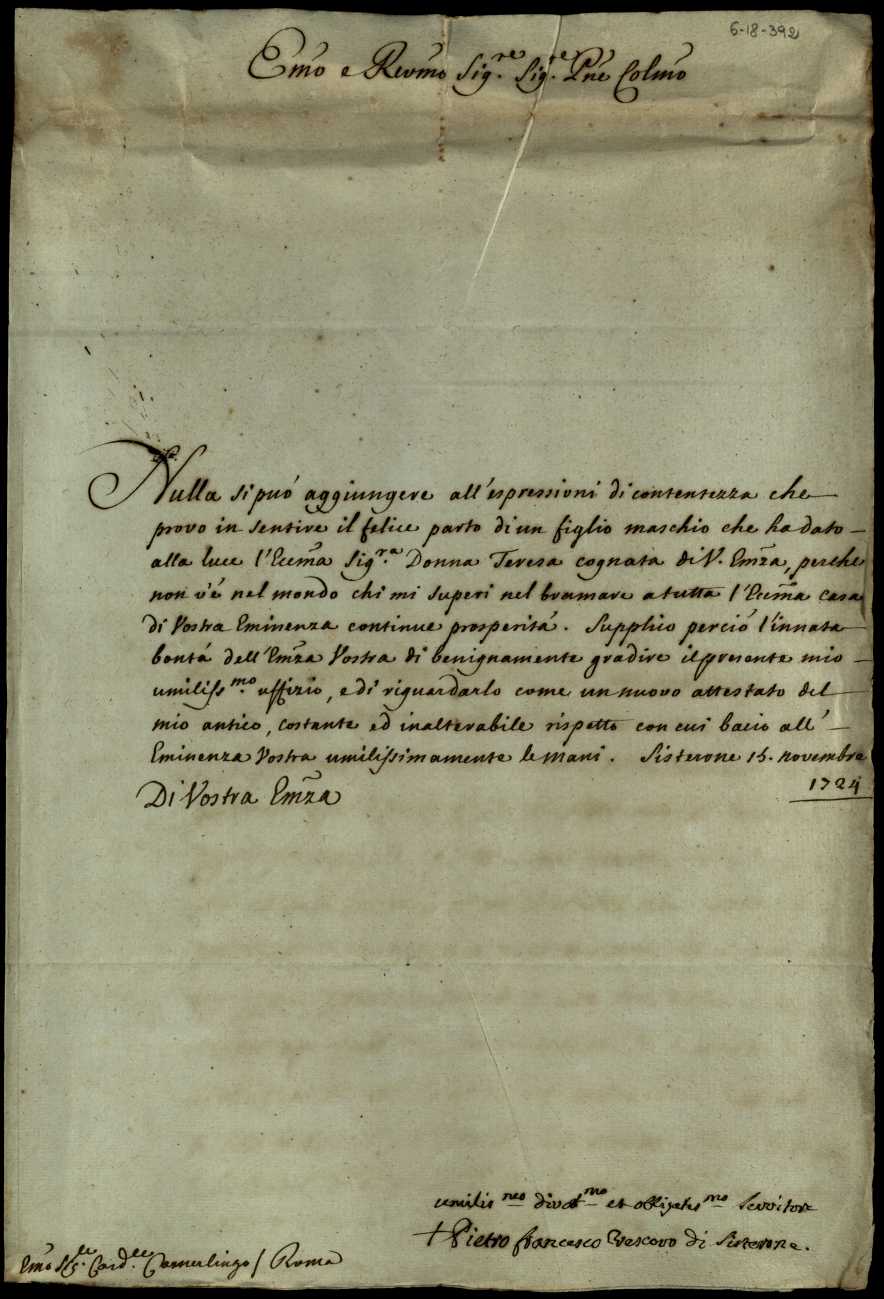 6-18-392
Emo e Revmo Sig.re Sig.re Pne Colmo
Nulla si può aggiungere all'espressioni di contentezza che
provo in sentire il felice parto di un figlio maschio che ha dato
alla luce l'Eccma Sig.ra Donna Teresa cognata di V. Emza, perche
non v'é nel mondo chi mi superi nel bramare a tutta l'Eccma casa
di Vostra Eminenza continue prosperitá. Supplico perció l'innata
bontá dell'Emza Vostra di benignamente gradire il presente mio
umiliss.mo uffizio, e di riguardarlo come un nuovo attestato del
mio antico, costante ed inalterabile rispetto con cui bacio all'
Eminenza Vostra umilissimamente le mani. Sisterone 15. novembre
1724
Di Vostra Emza
umilis mo divot mo et obligatis mo Servitore
+ Pietro francesco Vescovo di Sisterone.
Emo Sig.re Card.le Camerlingo / Roma